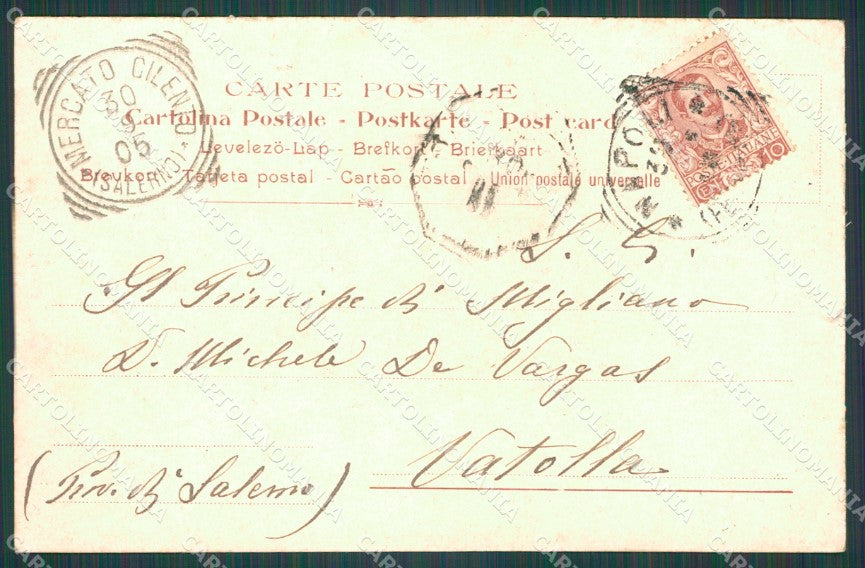 CARTE POSTALE
Cartolina Postale - Postkarte - Post card
Levelezö-Lap - Brefkort - Briefkaart
Brevkort - Tarjeta postal - Cartão postal - Union postale universelle
MERCATO CILENTO
30
05
(SALERNO)
NAPOLI
10
S. E.
Il Principe di Migliano
D. Michele De Vargas
Vatolla
(Prov. di Salerno)
CARTOLINOMANIA